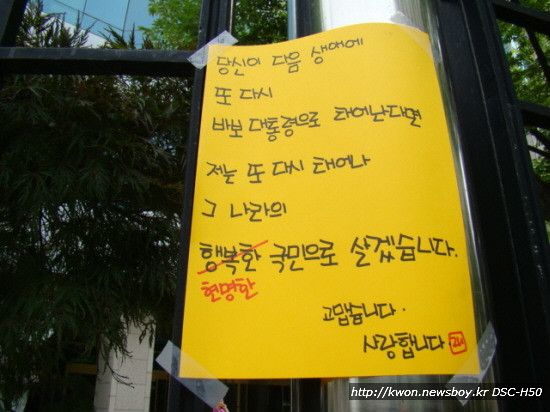 당신이 다음 생애에
또 다시
바보 대통령으로 태어난다면
저는 또 다시 태어나
그 나라의
행복한 국민으로 살겠습니다.
현명한
고맙습니다.
사랑합니다
http://kwon.newsboy.kr DSC-H50